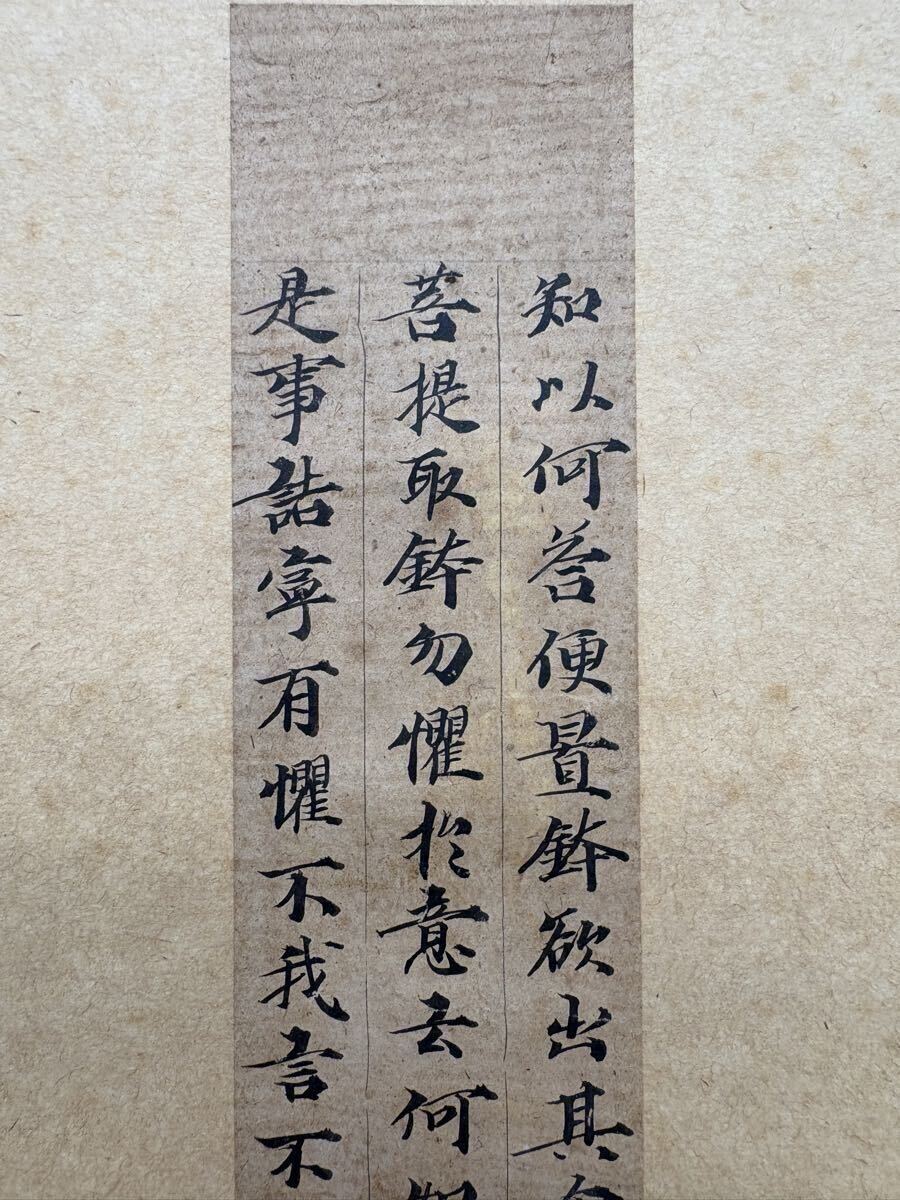 知以何荅便置鉢欲出其舍
菩提取鉢勿懼於意云何
是事詰寧有懼不我言不